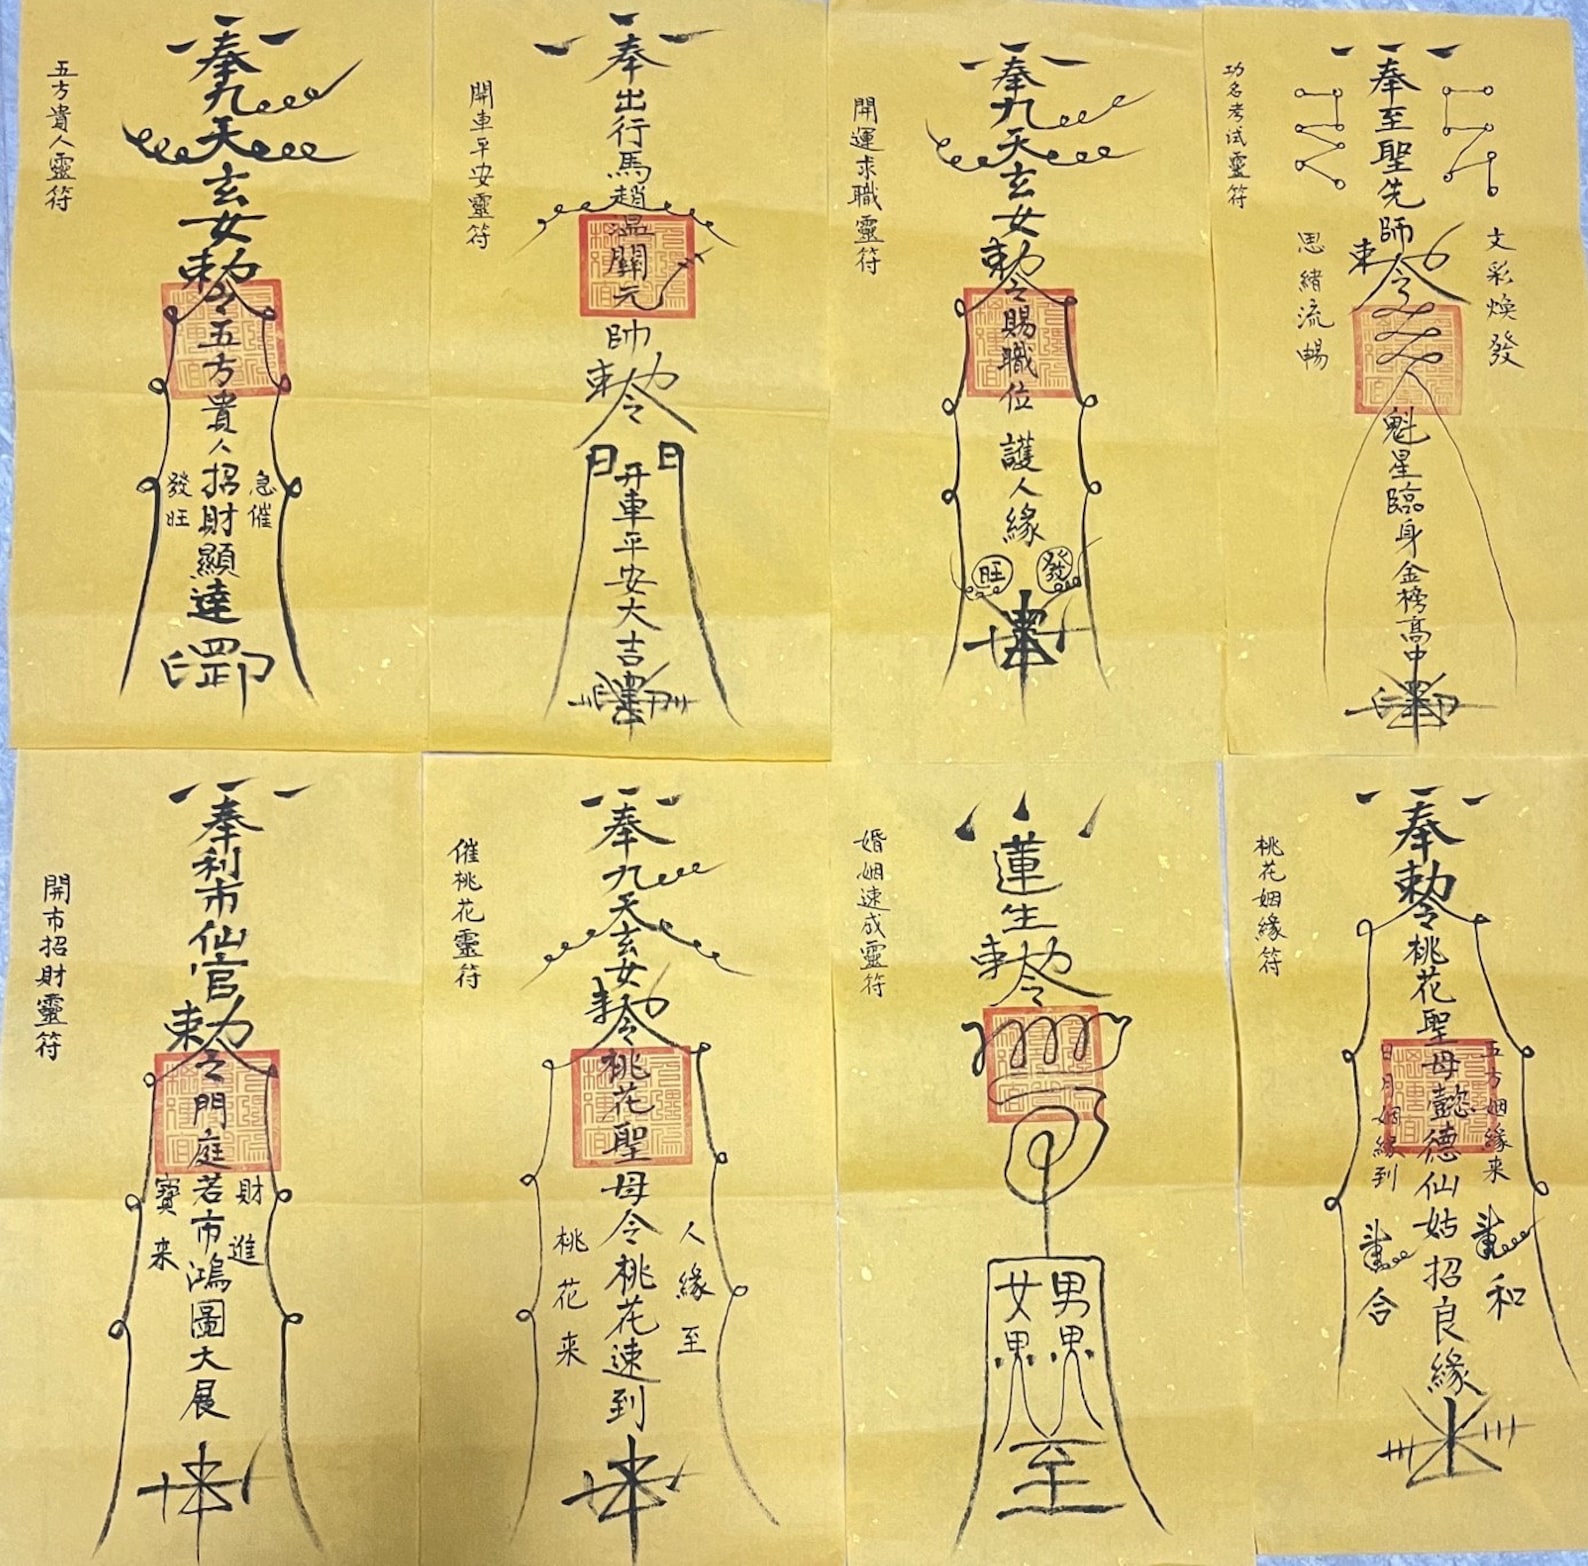 五方貴人靈符
奉九天玄女勅令五方貴人招財顯達
急催
發旺
開車平安靈符
奉出行馬趙溫關元帥勅令
日日
开車平安大吉
開運求職靈符
奉九天玄女勅令賜職位護人緣
旺發
功名考试靈符
奉至聖先師勅令
文彩煥發
思緒流暢
魁星臨身金榜高中
開市招財靈符
奉利市仙官勅令門庭若市鴻圖大展
財進
寶来
催桃花靈符
奉九天玄女勅令桃花聖母令桃花速到
人緣至
桃花来
婚姻速成靈符
蓮生勅令
男
女
至
桃花姻緣符
奉勅令桃花聖母懿德仙姑招良緣
五方姻緣来
和
日月姻緣到
合